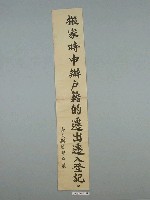 搬家時申辦戶籍的遷出遷入登記